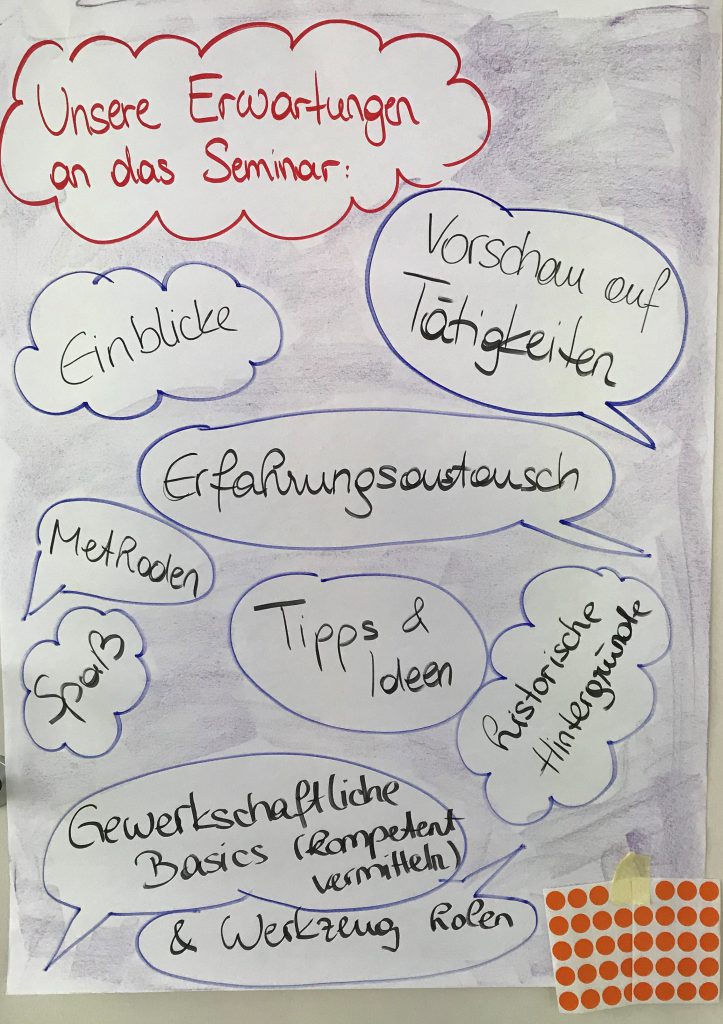 Unsere Erwartungen
an das Seminar:
Vorschau auf
Tätigkeiten
Einblicke
Erfahrungsaustausch
Methoden
Tipps &
Ideen
historische
Hintergründe
Spaß
Gewerkschaftliche
Basics (kompetent
vermitteln)
& Werkzeug holen